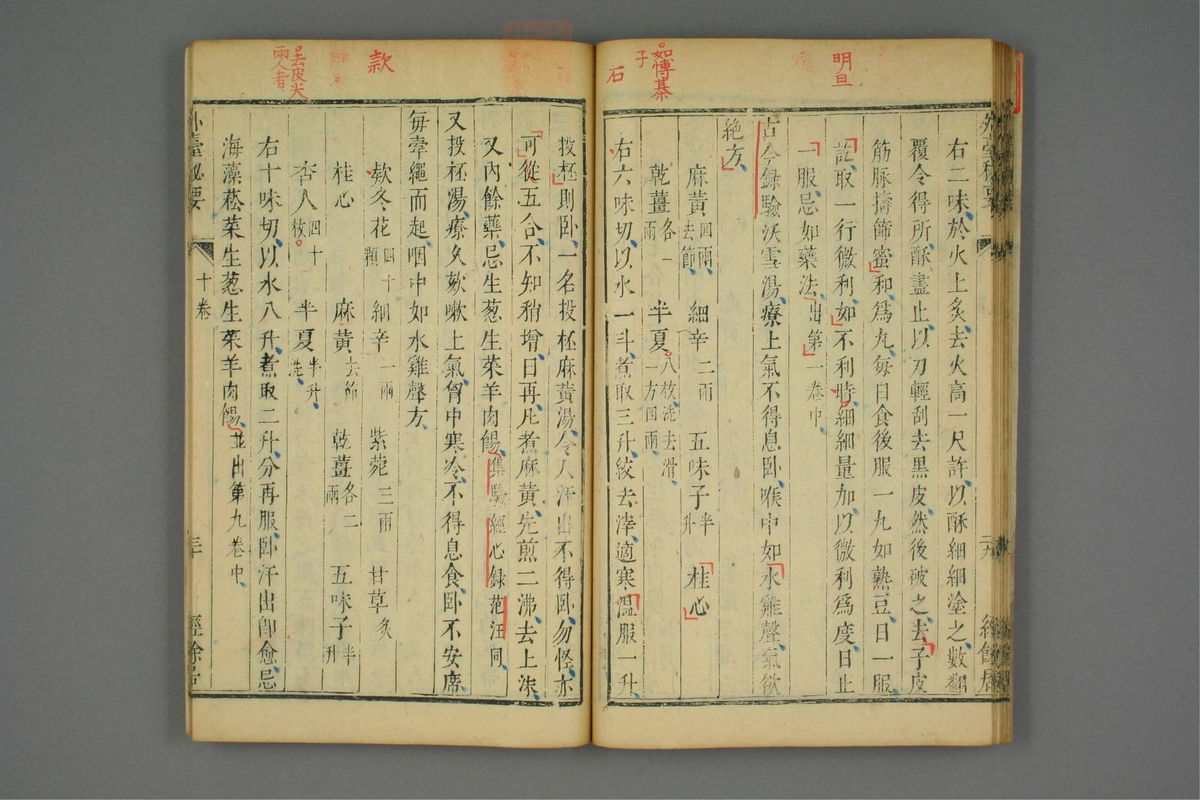 明旦
如博棊
子
石
右二味於火上炙去火高一尺許以酥細細塗之數翻
覆令得所酥盡止以刀輕刮去黑皮然後破之去子皮
筋脉擣篩蜜和爲丸每日食後服一丸如熟豆日一服
訖取一行微利如不利時細細量加以微利爲度日止
一服忌如藥法出第一卷中
古今錄驗沃雪湯療上氣不得息卧喉中如水雞聲氣欲
絶方
麻黃四兩去節 細辛二兩 五味子半升 桂心
乾薑各一兩 半夏八枚洗去滑一方四兩
右六味切以水一斗煮取三升絞去滓適寒溫服一升
款
去皮尖
兩人者
投杯則卧一名投杯麻黃湯令人汗出不得卧勿怪亦
可從五合不知稍增日再凡煮麻黃先煎二沸去上沫
又內餘藥忌生葱生菜羊肉餳集驗經心録范汪同
又投杯湯療久欬嗽上氣胷中寒冷不得息食卧不安席
每牽繩而起咽中如水雞聲方
欵冬花四十顆 細辛一兩 紫菀三兩 甘草炙
桂心 麻黃去節 乾薑各二兩 五味子半升
杏人四十枚 半夏半升洗
右十味切以水八升煮取二升分再服卧汗出卽愈忌
海藻菘菜生葱生菜羊肉餳並出第九卷中
外臺秘要 十卷 三十 經餘居